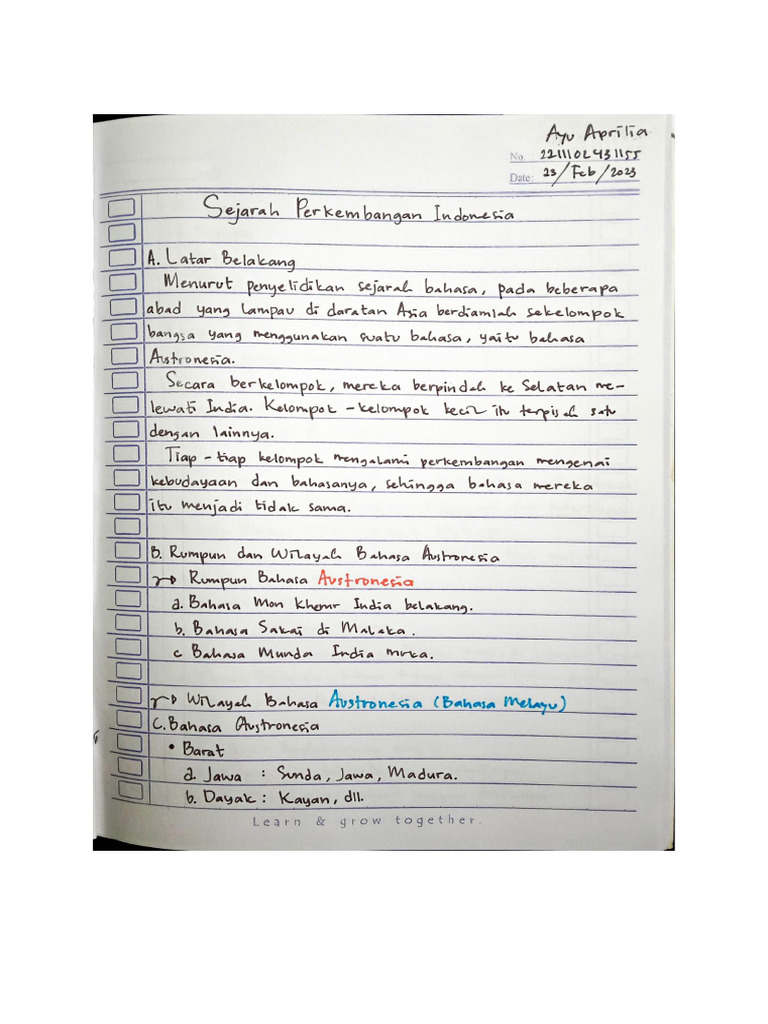 Ayu Aprilia
No. 2211102431155
Date: 23/Feb/2023
Sejarah Perkembangan Indonesia
A. Latar Belakang
Menurut penyelidikan sejarah bahasa, pada beberapa
abad yang lampau di daratan Asia berdiamlah sekelompok
bangsa yang menggunakan suatu bahasa, yaitu bahasa
Austronesia.
Secara berkelompok, mereka berpindah ke Selatan me-
lewati India. Kelompok - kelompok kecil itu terpisah satu
dengan lainnya.
Tiap - tiap kelompok mengalami perkembangan mengenai
kebudayaan dan bahasanya, sehingga bahasa mereka
itu menjadi tidak sama.
B. Rumpun dan Wilayah Bahasa Austronesia
Rumpun Bahasa Austronesia
a. Bahasa Mon Khemr India belakang.
b. Bahasa Sakai di Malaka.
c Bahasa Munda India
Wilayah Bahasa Austronesia (Bahasa Melayu)
C. Bahasa Austronesia
• Barat
a. Jawa : Sunda, Jawa, Madura.
b. Dayak : Kayan, dll.
Learn & grow together.